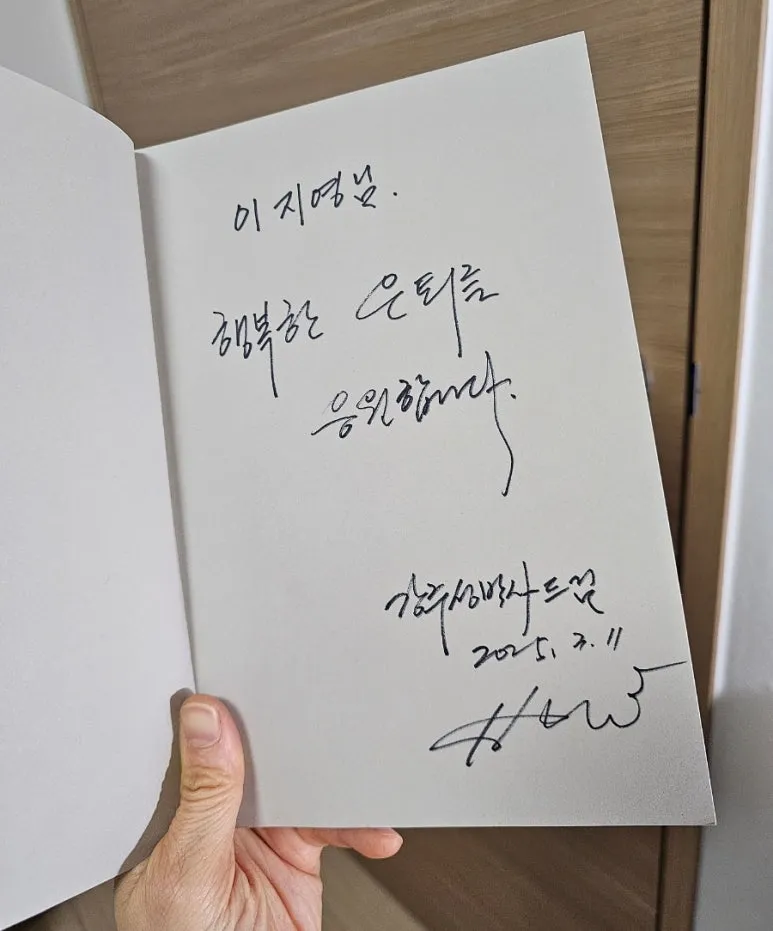 이지영님.
행복한 은퇴를
응원합니다.
강주성박사 드림
2025. 3. 11